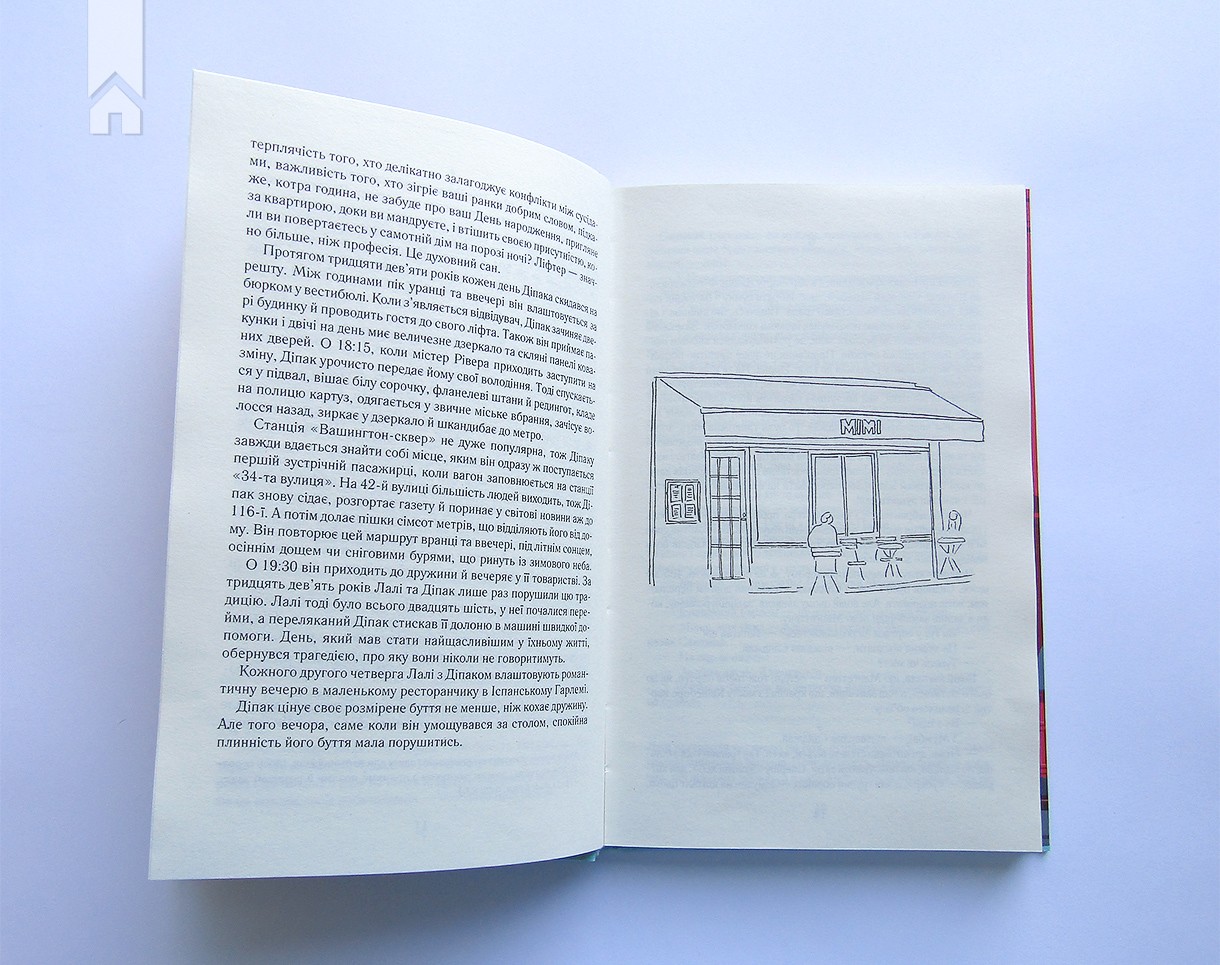 терплячість того, хто делікатно залагоджує конфлікти між сусіда-
ми, важливість того, хто зігріє ваші ранки добрим словом, підка-
же, котра година, не забуде про ваш День народження, пригляне
за квартирою, доки ви мандруєте, і втішить своєю присутністю, ко-
ли ви повертаєтесь у самотній дім на порозі ночі? Ліфтер — знач-
но більше, ніж професія. Це духовний сан.
Протягом тридцяти дев’яти років кожен день Діпака скидався на
решту. Між годинами пік уранці та ввечері він влаштовується за
бюрком у вестибюлі. Коли з’являється відвідувач, Діпак зачиняє две-
рі будинку й проводить гостя до свого ліфта. Також він приймає па-
кунки і двічі на день миє величезне дзеркало та скляні панелі кова-
них дверей. О 18:15, коли містер Рівера приходить заступити на
зміну, Діпак урочисто передає йому свої володіння. Тоді спускаєть-
ся у підвал, вішає білу сорочку, фланелеві штани й редингот, кладе
на полицю картуз, одягається у звичне міське вбрання, зачісує во-
лосся назад, зиркає у дзеркало й шкандибає до метро.
Станція «Вашингтон-сквер» не дуже популярна, тож Діпаку
завжди вдається знайти собі місце, яким він одразу ж поступається
першій зустрічній пасажирці, коли вагон заповнюється на станції
«34-та вулиця». На 42-й вулиці більшість людей виходить, тож Ді-
пак знову сідає, розгортає газету й поринає у світові новини аж до
116-ї. А потім долає пішки сімсот метрів, що відділяють його від до-
му. Він повторює цей маршрут вранці та ввечері, під літнім сонцем,
осіннім дощем чи сніговими бурями, що ринуть із зимового неба.
О 19:30 він приходить до дружини й вечеряє у її товаристві. За
тридцять дев’ять років Лалі та Діпак лише раз порушили цю тра-
дицію. Лалі тоді було всього двадцять шість, у неї почалися пере-
йми, а переляканий Діпак стискав її долоню в машині швидкої до-
помоги. День, який мав стати найщасливішим у їхньому житті,
обернувся трагедією, про яку вони ніколи не говоритимуть.
Кожного другого четверга Лалі з Діпаком влаштовують роман-
тичну вечерю в маленькому ресторанчику в Іспанському Гарлемі.
Діпак цінує своє розмірене буття не менше, ніж кохає дружину.
Але того вечора, саме коли він умощувався за столом, спокійна
плинність його буття мала порушитись.
MIMI